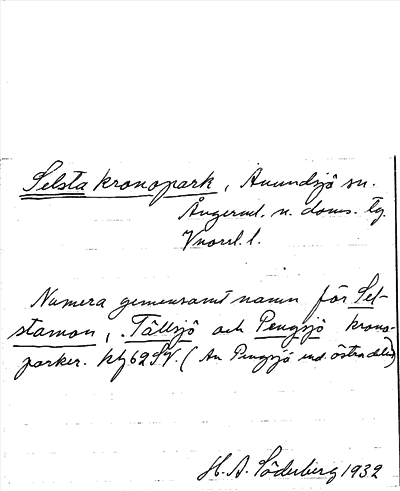 Selsta kronopark, Anundsjö sn.
Ångerml. n. doms. tg.
Vnorrl. l.
Numera gemensamt namn för Sel-
stamon, Tällsjö och Pengsjö krono-
parker. 62 SV. (Av Pengsjö end. östra delen)
H. A. Söderberg 1932